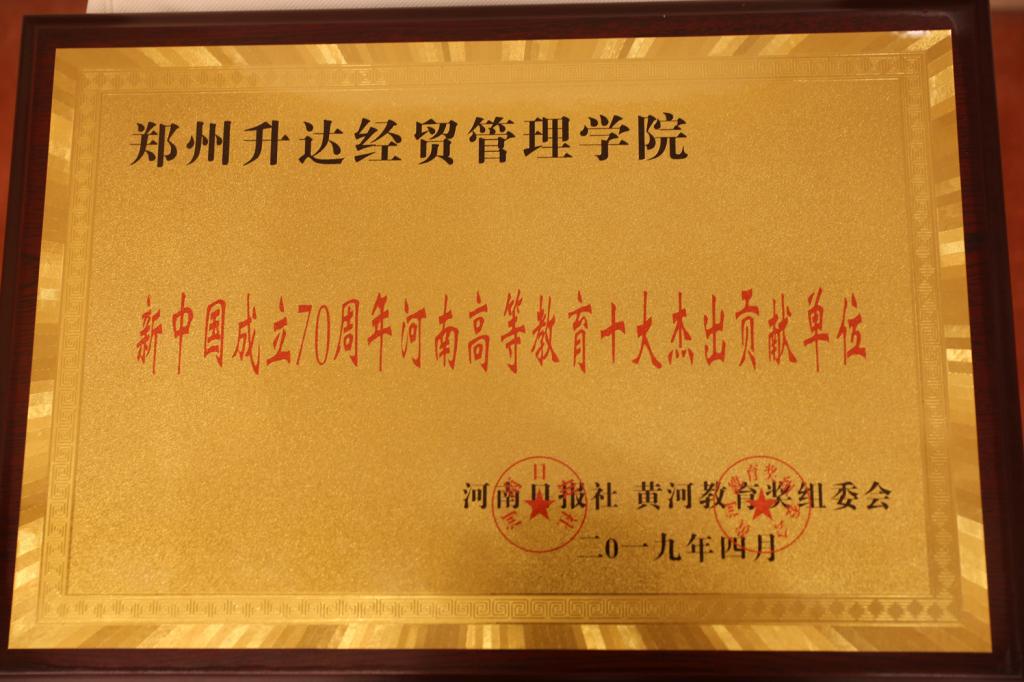 郑州升达经贸管理学院
新中国成立70周年河南高等教育十大杰出贡献单位
河南日报社 黄河教育奖组委会
二0一九年四月